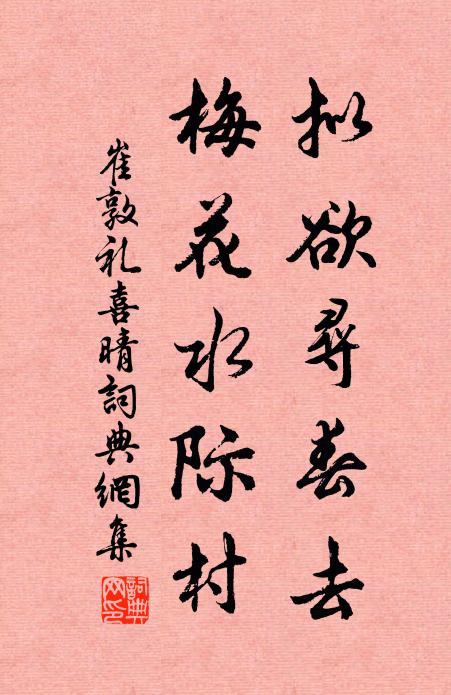 拟欲寻春去
梅花水际村
崔敦礼喜晴詞典網集
詞典网印